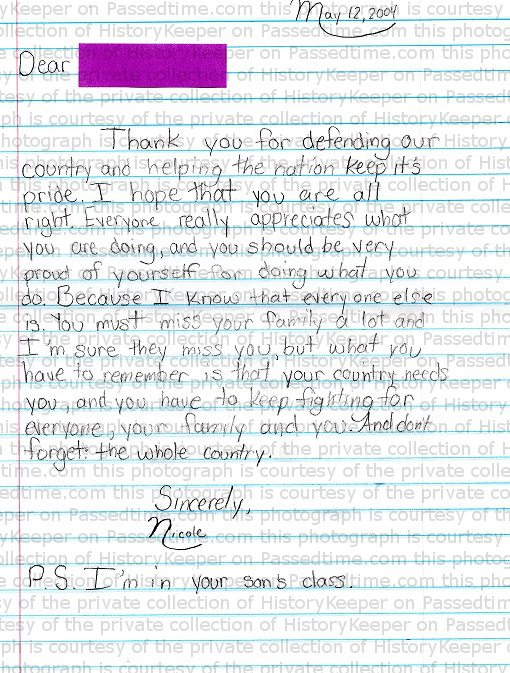 May 12, 2004
Dear
Thank you for defending our
country and helping the nation keep it's
pride. I hope that you are all
right. Everyone really appreciates what
you are doing, and you should be very
proud of yourself for doing what you
do. Because I know that every one else
is. You must miss your family a lot and
I'm sure they miss you, but what you
have to remember is that your country needs
you, and you have to keep fighting for
everyone, your family and you. And don't
forget: the whole country.
Sincerely,
Nicole
P.S. I'm in your son's class.
this photograph is courtesy of the private collection of HistoryKeeper on Passedtime.com